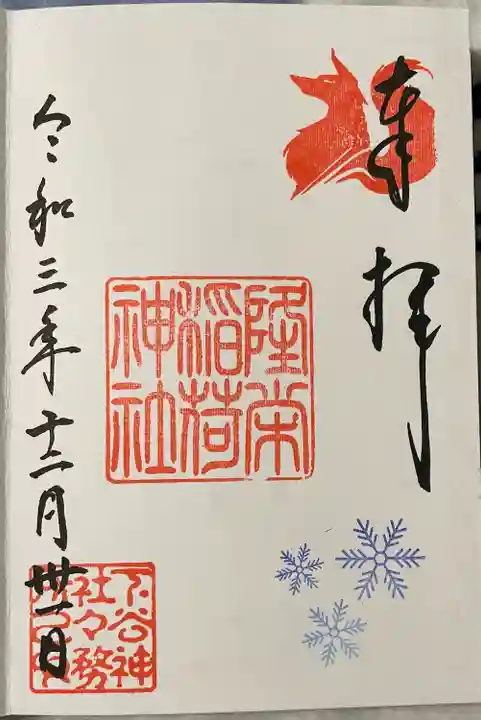 奉拝
隆栄
稲荷
神社
令和三年十二月丗一日
下谷神
社々務